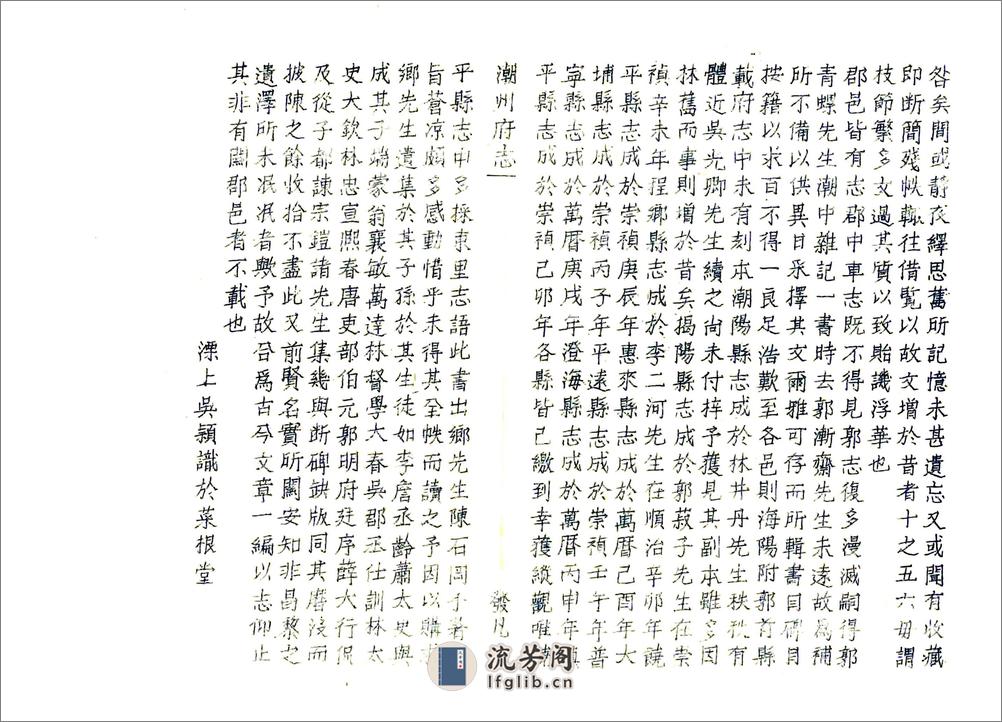 咎矣間或靜夜繹思舊所記憶未甚遺忘又或聞有收藏
即断簡殘帙輒往借覧以故文增於昔者十之五六毋謂
枝節繁多文過其質以致貽譏浮華也
郡邑皆有志郡中車志既不得見郭志復多漫滅嗣得郭
青螺先生潮中雜記一書時去郭漸齋先生未遠故為補
所不備以供異日采擇其文爾雅可存而所輯書目碑目
按籍以求百不得一良足浩歎至各邑則海陽附郭前縣
載府志中未有刻本潮陽縣志成於林井丹先生秩秩有
體近吳光卿先生續之尚未付梓予獲見其副本雖多因
林舊而事則增於昔矣揭陽縣志成於郭菽子先生在崇
禎辛未年程鄉縣志成於李二河先生在順治辛卯年饒
平縣志成於崇禎庚辰年惠來縣志成於萬曆己酉年大
埔縣志成於崇禎丙子年平遠縣志成於崇禎壬午年普
寧縣志成於萬曆庚戌年澄海縣志成於萬曆丙申年鎮
平縣志成於崇禎己卯年各縣皆已繳到幸獲縱觀唯饒
潮州府志 發凡
平縣志中多採東里志語此書出鄉先生陳石岡手著
旨蒼凉頗多感動惜乎未得其全帙而讀之予因以購求
鄉先生遺集於其子孫於其生徒如李詹丞齡蕭太史與
成其子端蒙翁襄敏萬達林督學大春吳郡丞仕訓林太
史大欽林忠宣熙春唐吏部伯元郭明府廷序薛大行侃
及從子都諫宗鎧諸先生集幾與断碑缺版同其磨沒而
披陳之餘收拾不盡此又前賢名實所關安知非昌黎之
遺澤所未泯泯者歟予故合為古今文章一編以志仰止
其非有關郡邑者不載也
溧上吳穎識於菜根堂
流芳阁
lfglib.cn